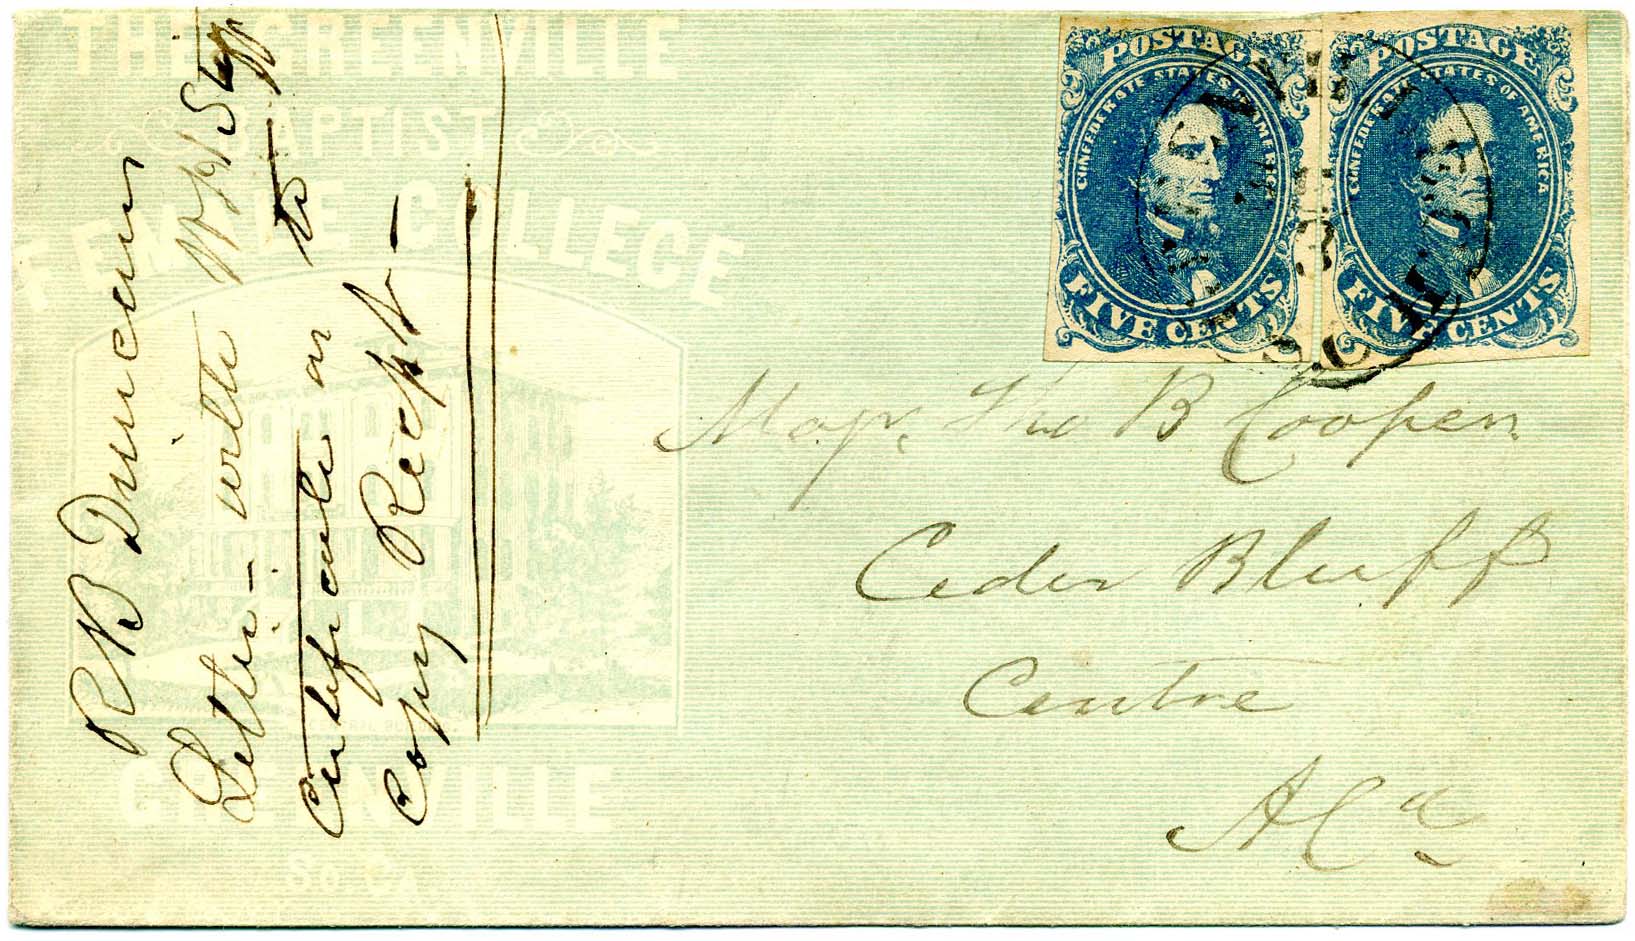 THE GREENVILLE
BAPTIST
FEMALE COLLEGE
GREENVILLE
So. CA
POSTAGE
CONFEDERATE STATES OF AMERICA
FIVE CENTS
POSTAGE
CONFEDERATE STATES OF AMERICA
FIVE CENTS
Majr. Tho B Cooper
Ceder Bluff
Centre
Ala
R B Duncan
Letter - with
Certificate as to
Copy Recpt -